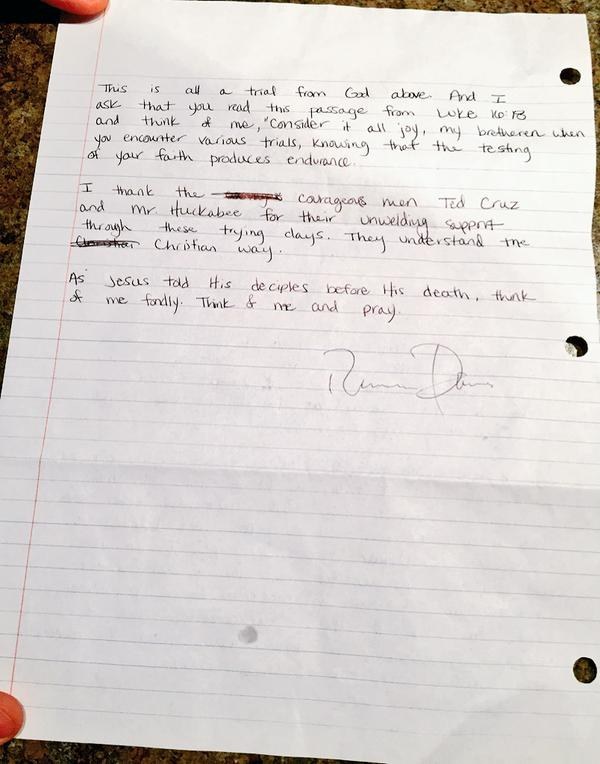 This is all a trial from God above. And I
ask that you read this passage from Luke 16:13
and think of me, "Consider it all joy, my bretheren when
you encounter various trials, knowing that the testing
of your faith produces endurance.
I thank the courageous men Ted Cruz
and Mr. Huckabee for their unwelding support
through these trying days. They understand the
Christian way.
As Jesus told His deciples before His death, think
of me fondly. Think of me and pray.